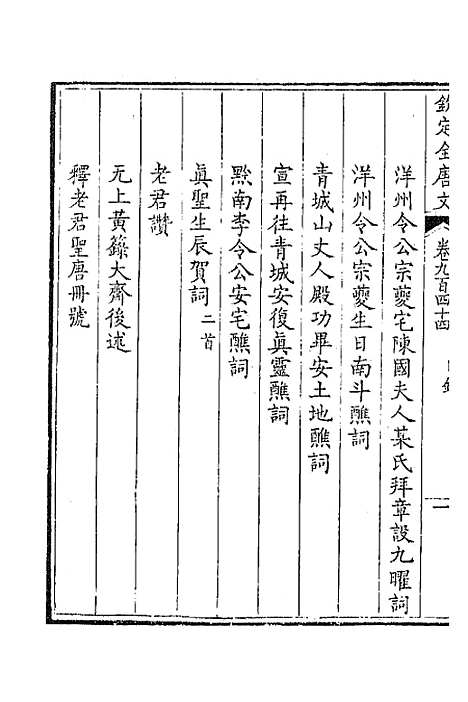 欽定全唐文 卷九百四十四 目錄 一
洋州令公宗夔宅陳國夫人某氏拜章設九曜詞
洋州令公宗夔生日南斗醮詞
青城山丈人殿功畢安土地醮詞
宣再往青城安復真靈醮詞
黔南李令公安宅醮詞
真聖生辰賀詞二首
老君讚
无上黃籙大齋後述
釋老君聖唐冊號